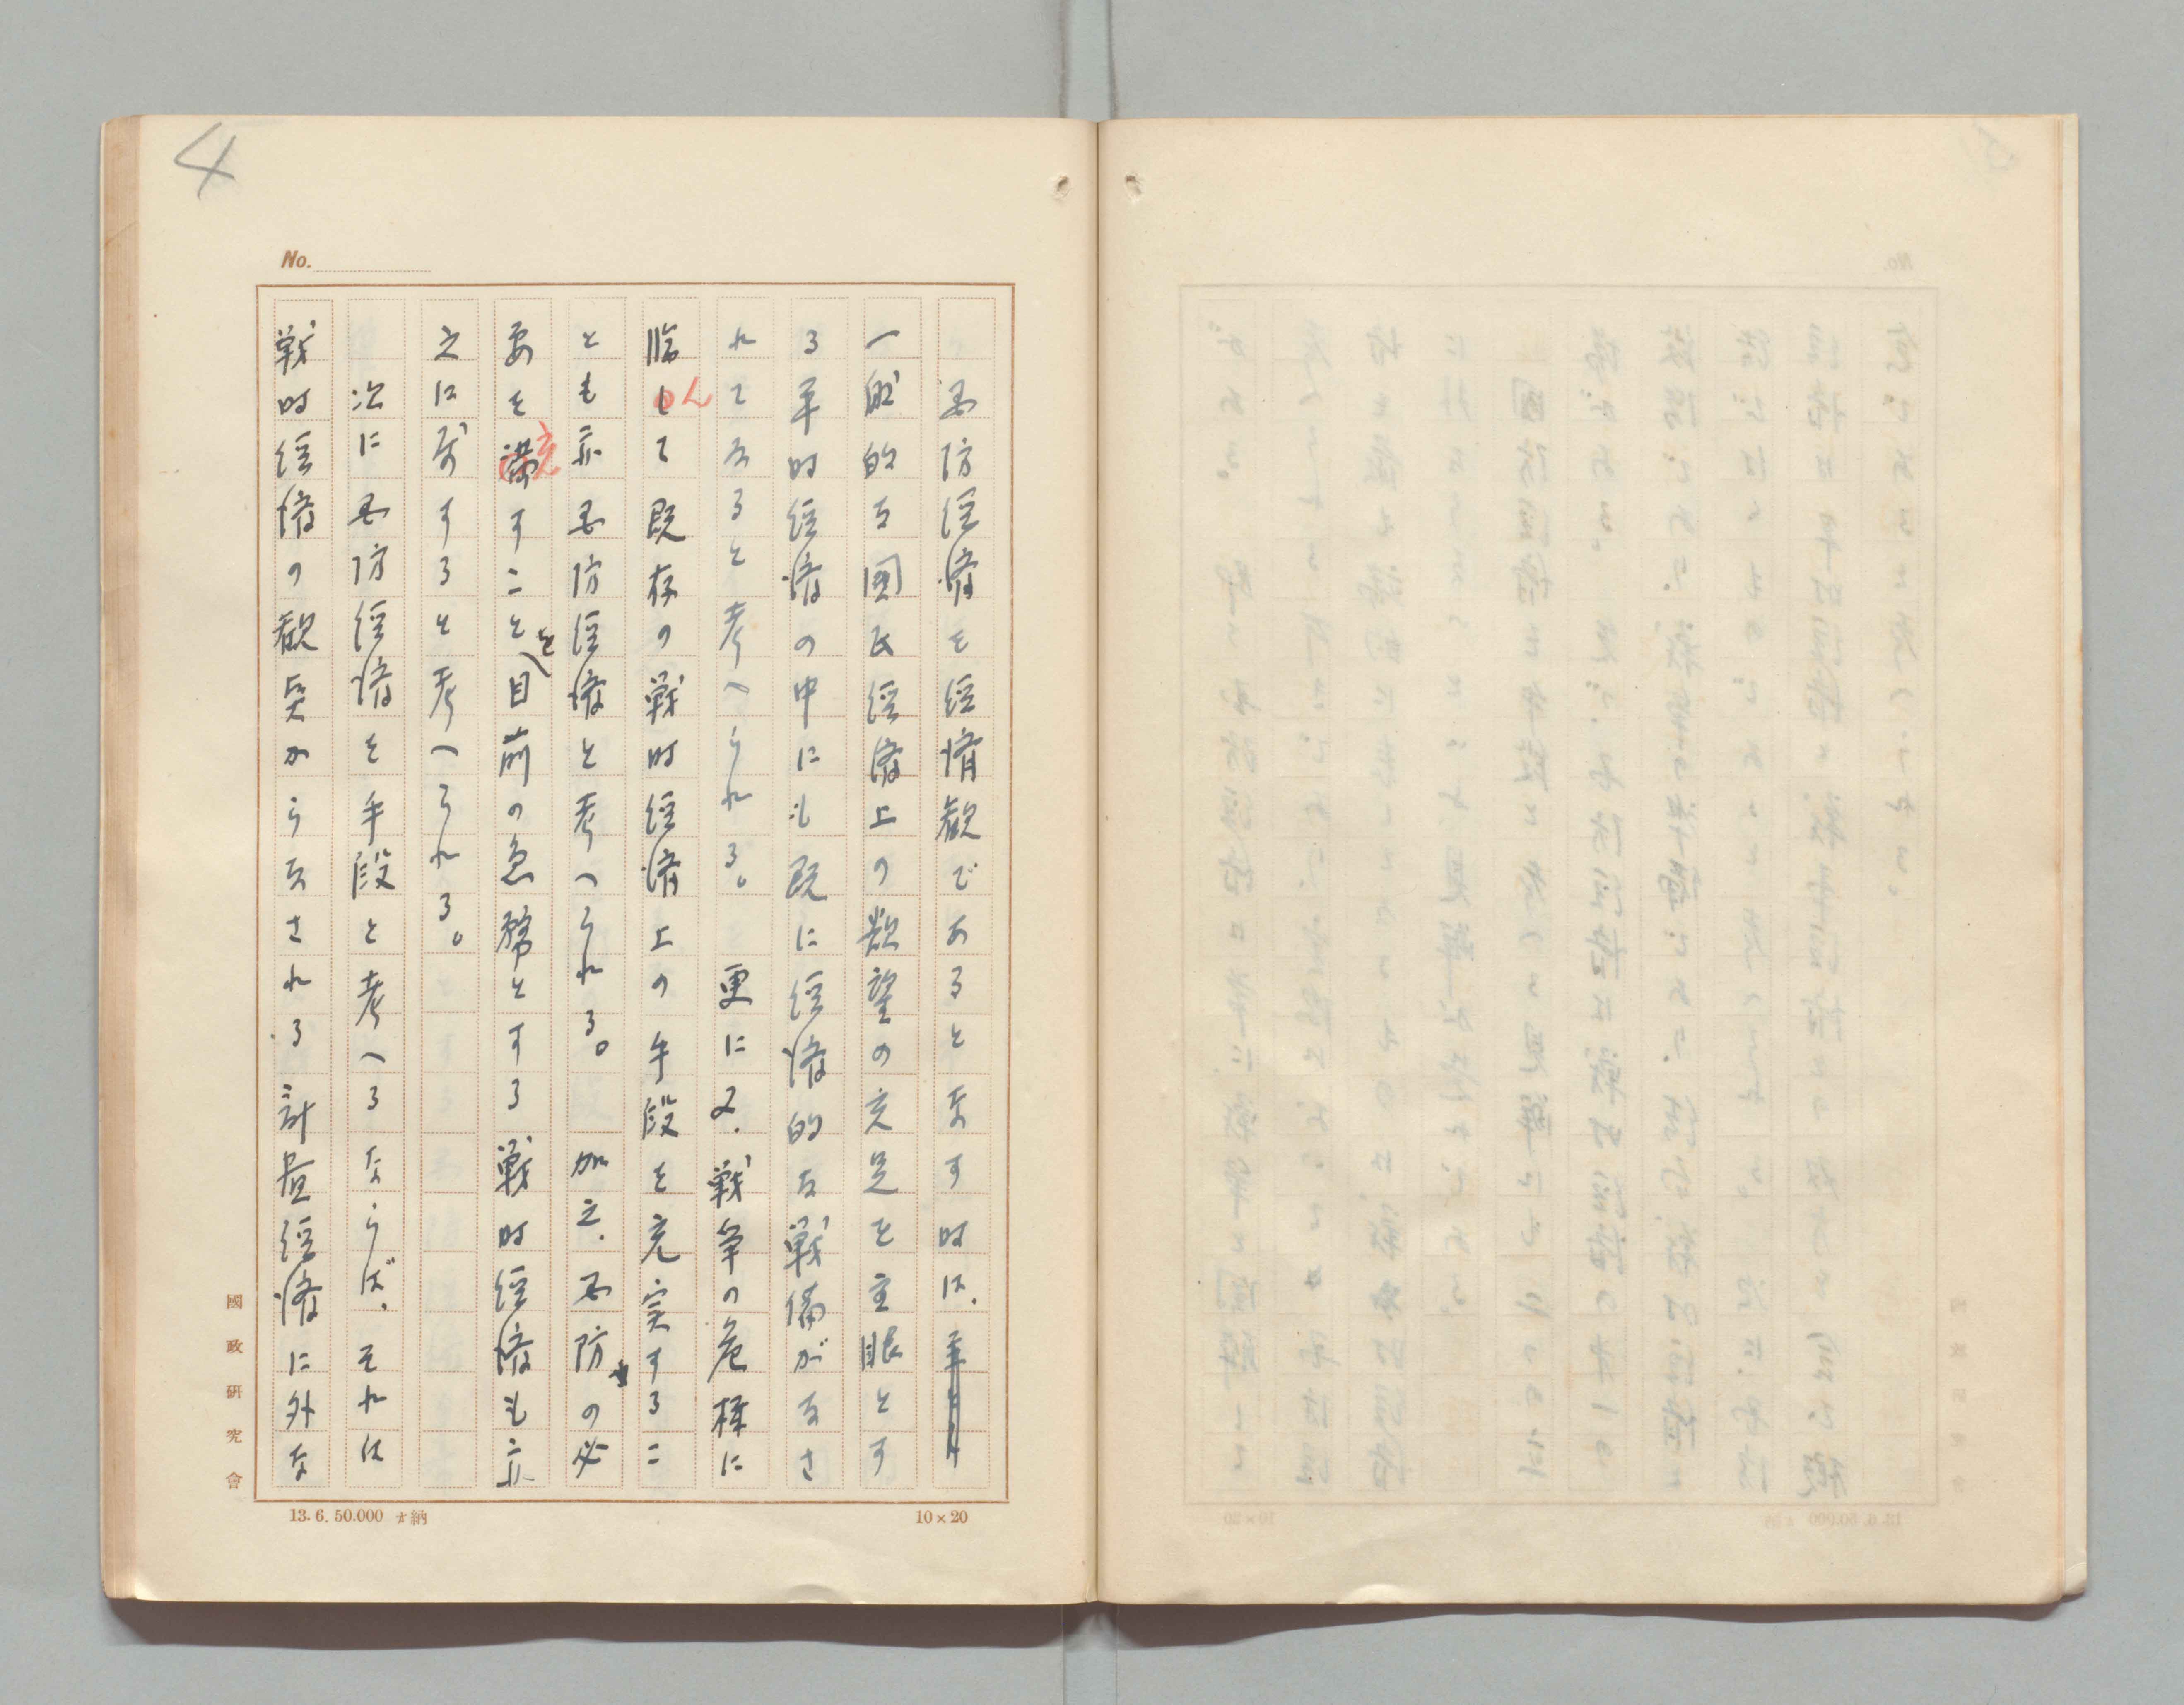 4
No.
国防経済を経済観であるとなす時は、
一般的な国民経済上の欲望の充足を主眼とす
る平時経済の中にも既に経済的な戦備がなさ
れてゐると考へられる。 更に又、戦争の危機に
臨んて既存の戦時経済上の手段を充実するこ
とも亦国防経済と考へられる。 加之、国防の必
要を充すことを目前の急務とする戦時経済も亦
之に属すると考へられる。
次に国防経済を手段と考へるならば、それは
戦時経済の観点からなされる計畫経済に外な
國政研究會
13.6.50.000 納
10×20